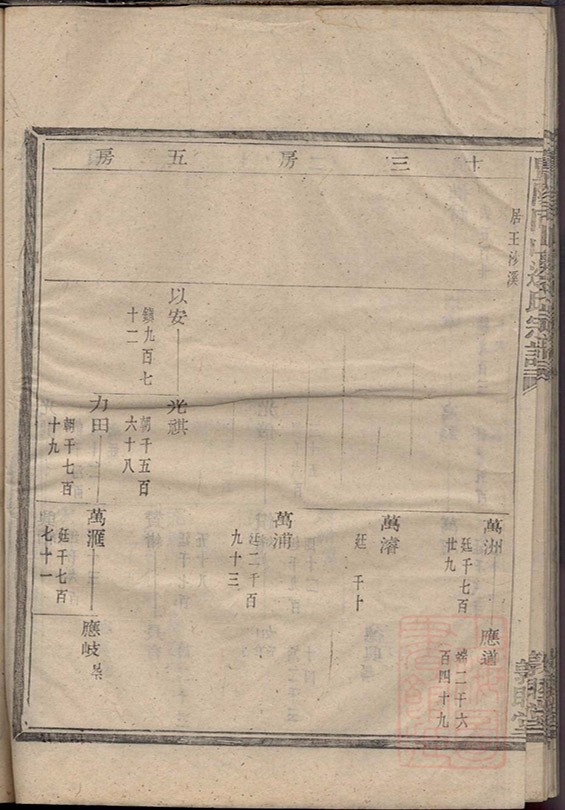 十三房　五房
居王沙溪
萬洲
廷千七百
廿九
應道
二千六
百四十九
萬濬
廷　千十
萬浦
廷二千百
九十三
以安
鎮九百七
十二
光祺
朝千五百
六十八
力田
朝千七百
十九
萬滙
廷千七百
七十一
應岐
氏宗譜